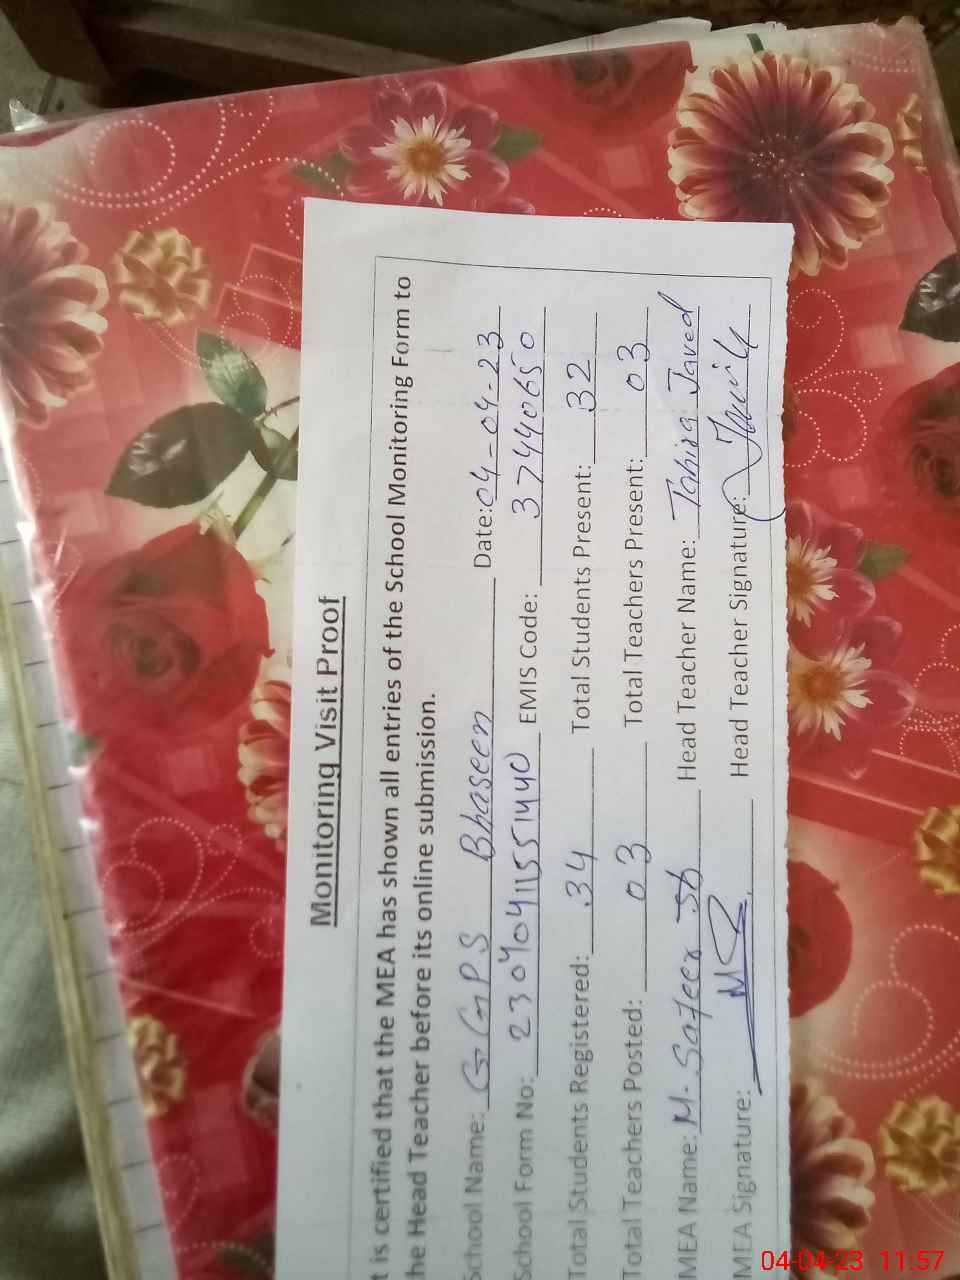 Monitoring Visit Proof
t is certified that the MEA has shown all entries of the School Monitoring Form to
he Head Teacher before its online submission.
School Name: GGPS Bhaseen Date: 04-04-23
School Form No: 23040411551440 EMIS Code: 37440650
Total Students Registered: 34 Total Students Present: 32
Total Teachers Posted: 03 Total Teachers Present: 03
MEA Name: M. Safeer Head Teacher Name: Tahira Javed
MEA Signature: Head Teacher Signature:
04-04-23 11:57